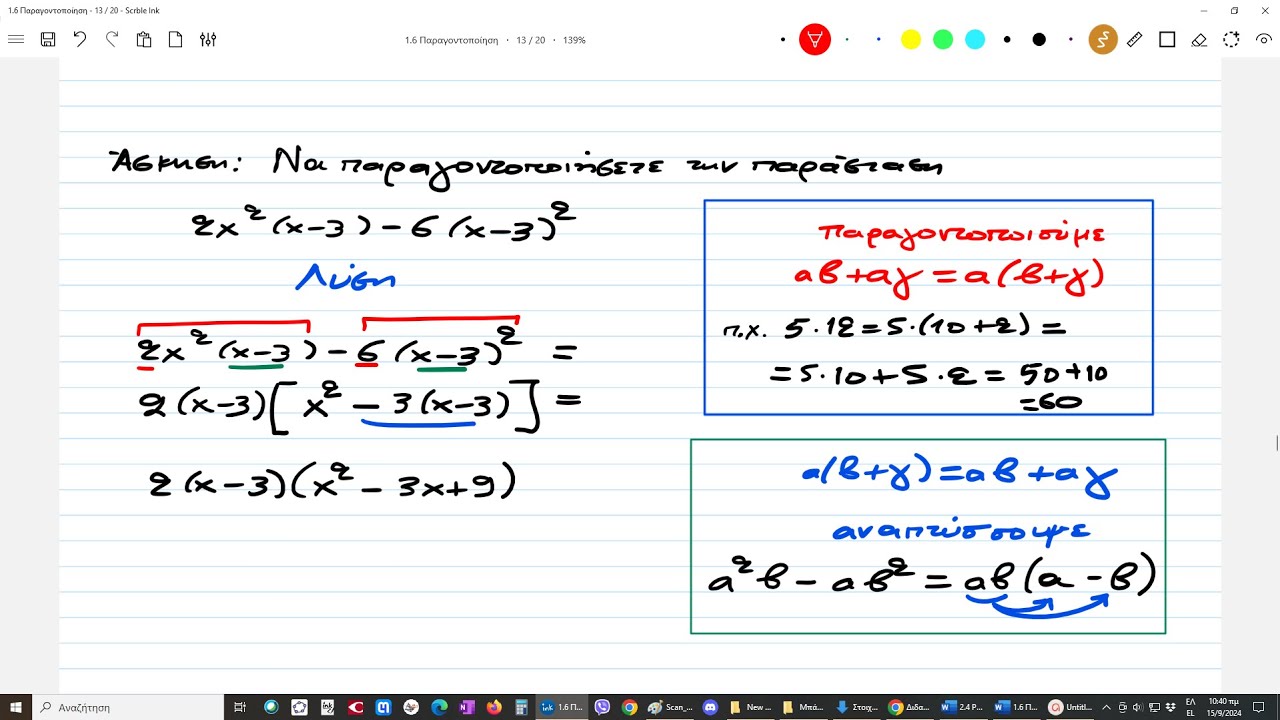 1.6 Παραγοντοποίηση - 13 / 20 - Scrble Ink
1.6 Παραγοντοποίηση · 13 / 20 · 139%
Άσκηση: Να παραγοντοποιήσετε την παράσταση
2x²(x-3)-6(x-3)²
Λύση
2x²(x-3)-6(x-3)² =
2(x-3)[x²-3(x-3)]=
2(x-3)(x²-3x+9)
παραγοντοποιούμε
αβ+αγ=α(β+γ)
π.χ. 5·12=5·(10+2)=
=5·10+5·2= 50+10
=60
α(β+γ)=αβ+αγ
αναπτύσσουμε
α²β-αβ²=αβ(α-β)
Αναζήτηση
1.6 Π...
Scan_...
New ...
Μπά...
Στοχ...
Διδα...
2.4 P...
1.6 Π...
1.6 Π...
Untit...
ΕΛ
EL
10:40 πμ
15/9/2024